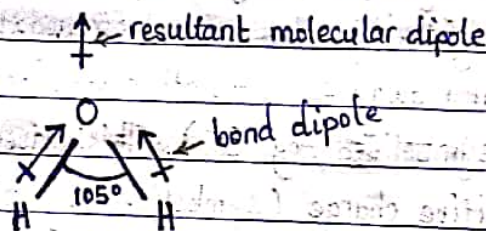 resultant molecular dipole
O
bond dipole
105°
H H